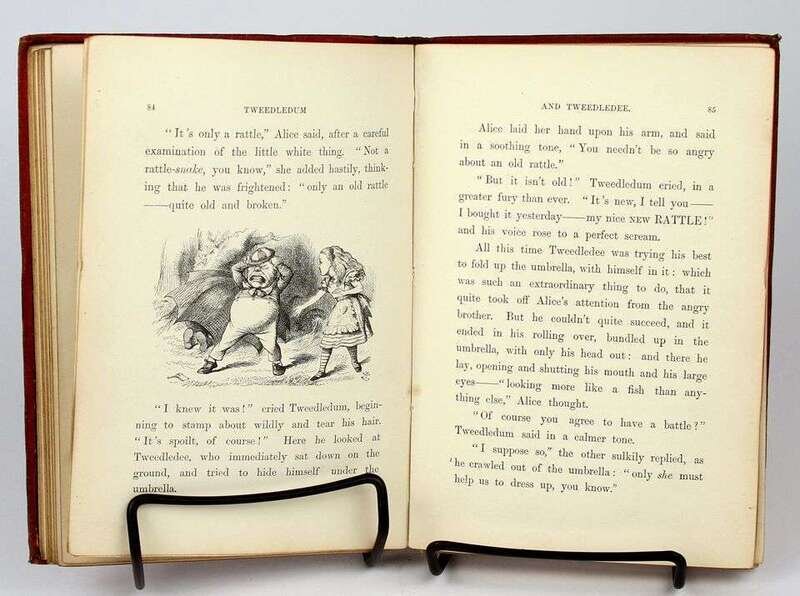 84
TWEEDLEDUM
"It's only a rattle," Alice said, after a careful
examination of the little white thing. "Not a
rattle-snake, you know," she added hastily, think-
ing that he was frightened: "only an old rattle
——quite old and broken."
"I knew it was!" cried Tweedledum, begin-
ning to stamp about wildly and tear his hair.
"It's spoilt, of course!" Here he looked at
Tweedledee, who immediately sat down on the
ground, and tried to hide himself under the
umbrella.
AND TWEEDLEDEE.
85
Alice laid her hand upon his arm, and said
in a soothing tone, "You needn't be so angry
about an old rattle."
"But it isn't old!" Tweedledum cried, in a
greater fury than ever. "It's new, I tell you——
I bought it yesterday——my nice NEW RATTLE!"
and his voice rose to a perfect scream.
All this time Tweedledee was trying his best
to fold up the umbrella, with himself in it: which
was such an extraordinary thing to do, that it
quite took off Alice's attention from the angry
brother. But he couldn't quite succeed, and it
ended in his rolling over, bundled up in the
umbrella, with only his head out: and there he
lay, opening and shutting his mouth and his large
eyes——"looking more like a fish than any-
thing else," Alice thought.
"Of course you agree to have a battle?"
Tweedledum said in a calmer tone.
"I suppose so," the other sulkily replied, as
he crawled out of the umbrella: "only she must
help us to dress up, you know."